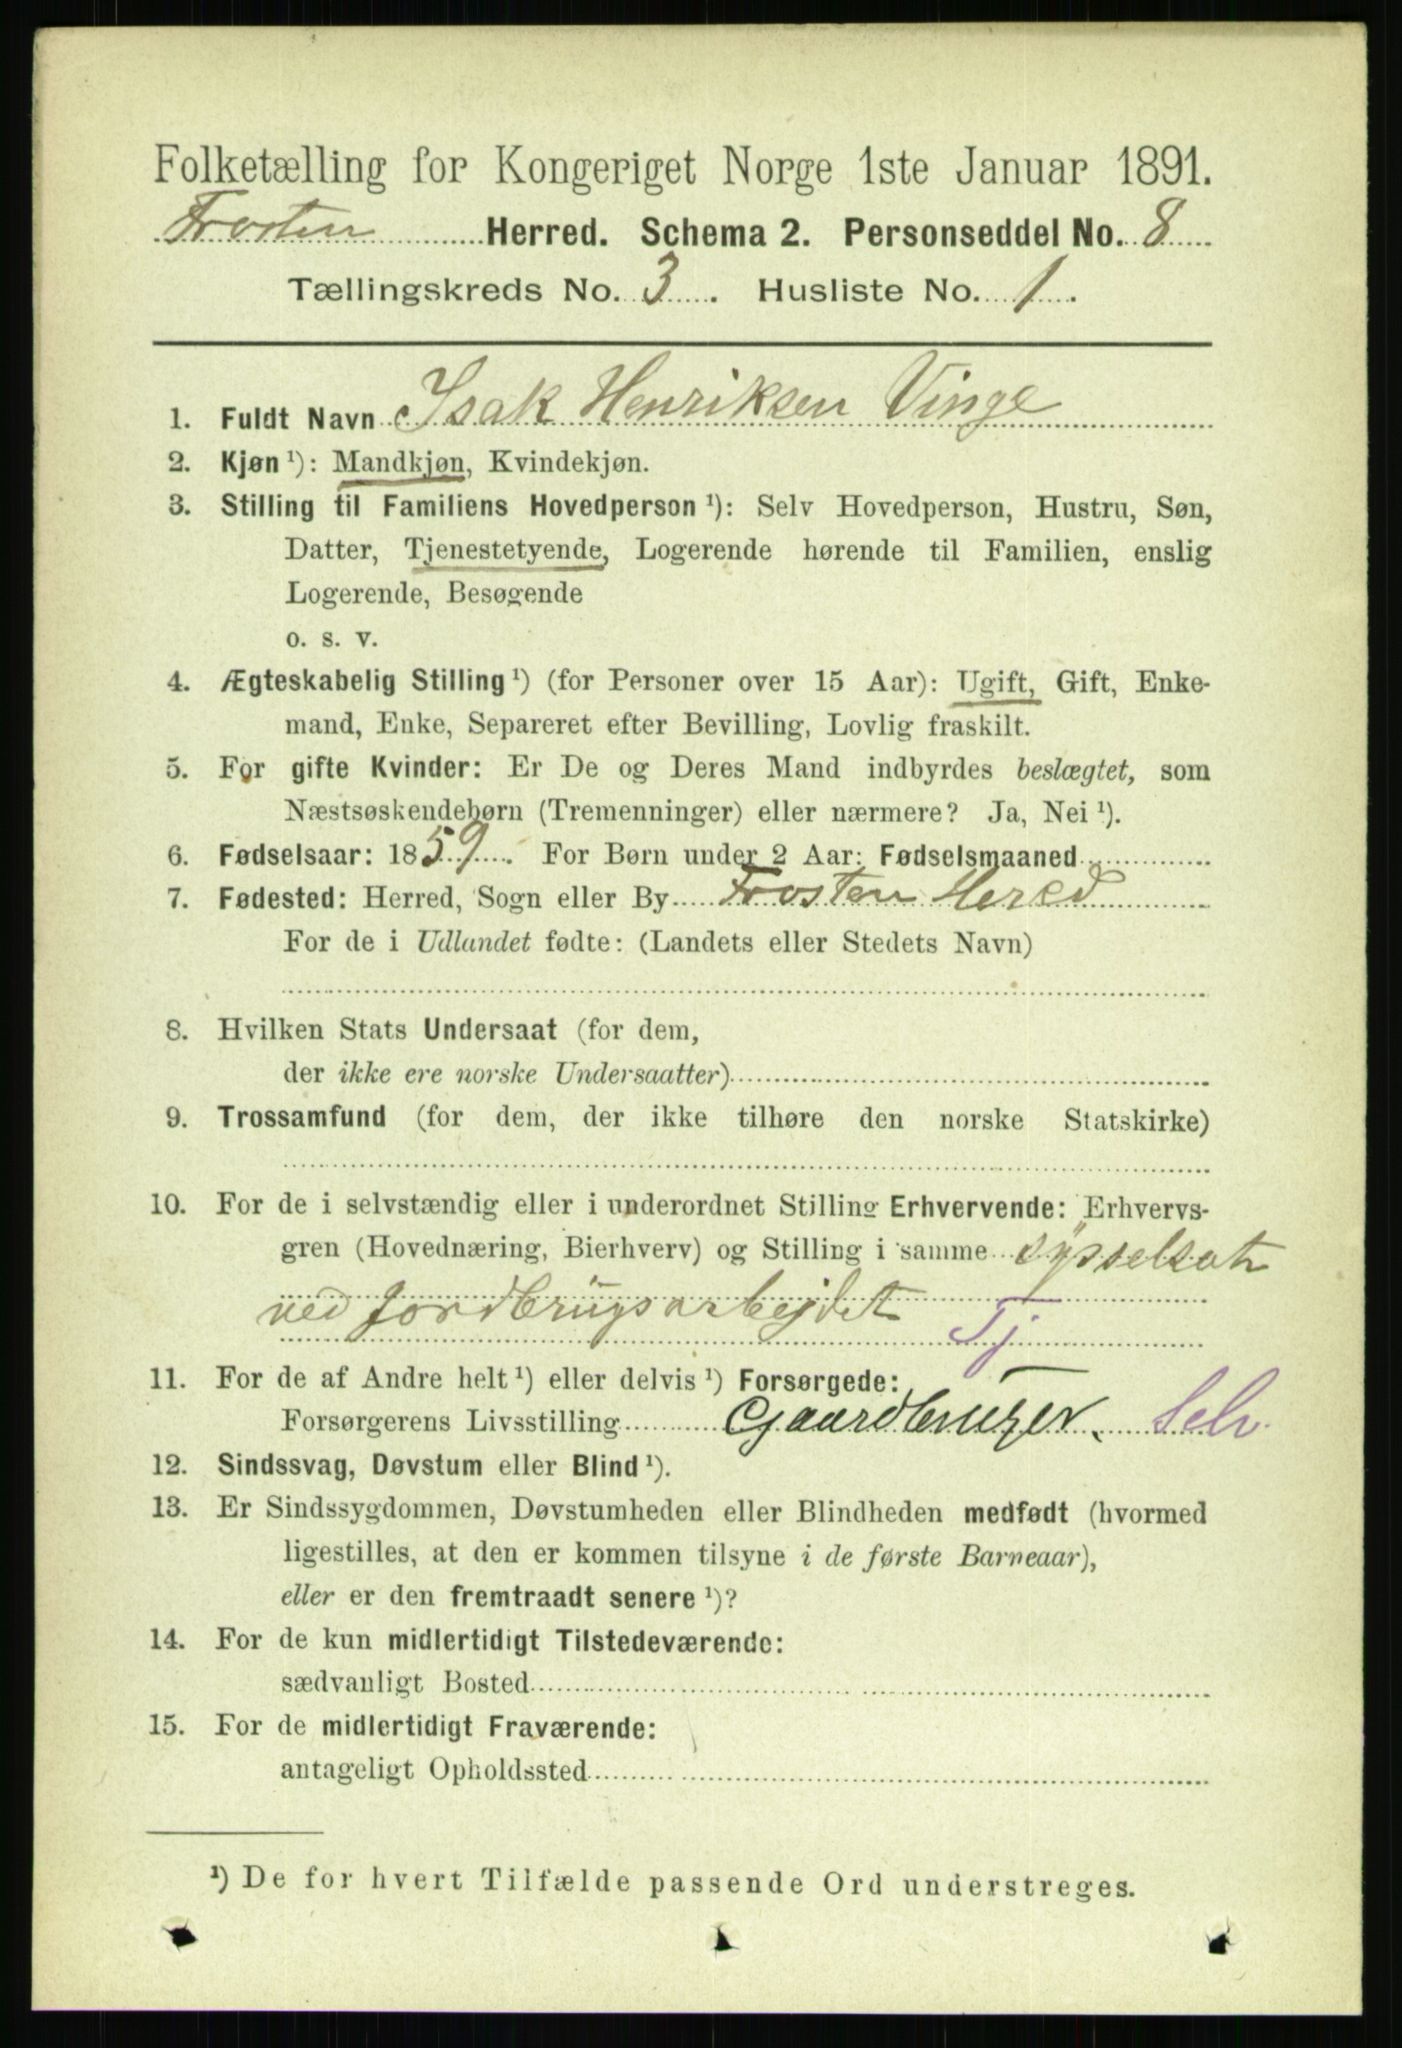 Folketælling for Kongeriget Norge 1ste Januar 1891.
Frosten Herred. Schema 2. Personseddel No. 8
Tællingskreds No. 3. Husliste No. 1.
1. Fuldt Navn Isak Henriksen Vinge
2. Kjøn ¹): Mandkjøn, Kvindekjøn.
3. Stilling til Familiens Hovedperson ¹): Selv Hovedperson, Hustru, Søn,
Datter, Tjenestetyende, Logerende hørende til Familien, enslig
Logerende, Besøgende
o. s. v.
4. Ægteskabelig Stilling ¹) (for Personer over 15 Aar): Ugift, Gift, Enke-
mand, Enke, Separeret efter Bevilling, Lovlig fraskilt.
5. For gifte Kvinder: Er De og Deres Mand indbyrdes beslægtet, som
Næstsøskendebørn (Tremenninger) eller nærmere? Ja, Nei ¹).
6. Fødselsaar: 1859. For Børn under 2 Aar: Fødselsmaaned
7. Fødested: Herred, Sogn eller By Frosten Hered
For de i Udlandet fødte: (Landets eller Stedets Navn)
8. Hvilken Stats Undersaat (for dem,
der ikke ere norske Undersaatter)
9. Trossamfund (for dem, der ikke tilhøre den norske Statskirke)
10. For de i selvstændig eller i underordnet Stilling Erhvervende: Erhvervs-
gren (Hovednæring, Bierhverv) og Stilling i samme sysselsat
ved Jordbrugsarbejdet Tj
11. For de af Andre helt ¹) eller delvis ¹) Forsørgede:
Forsørgerens Livsstilling Gaardbruger. Selv.
12. Sindssvag, Døvstum eller Blind ¹).
13. Er Sindssygdommen, Døvstumheden eller Blindheden medfødt (hvormed
ligestilles, at den er kommen tilsyne i de første Barneaar),
eller er den fremtraadt senere ¹)?
14. For de kun midlertidigt Tilstedeværende:
sædvanligt Bosted
15. For de midlertidigt Fraværende:
antageligt Opholdssted
¹) De for hvert Tilfælde passende Ord understreges.